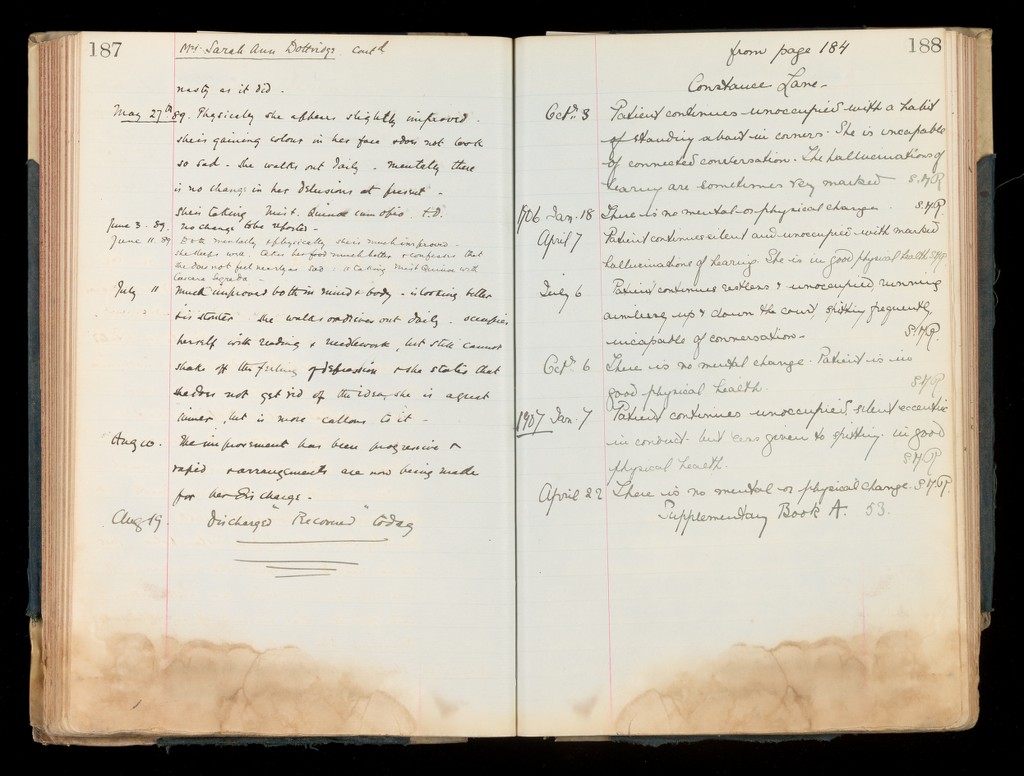 187
Mrs. Sarah Ann Dottridge contd
nasty as it did.
May 27th 89. Physically she appears slightly improved.
she is gaining colour in her face & does not look
so sad. She walks out daily. Mentally there
is no change in her delusions at present.
She is taking Mist. Quinae cum opio T.D.
June 3. 89. no change to be reported.
June 11. 89 Both mentally & physically she is much improved.
she sleeps well. takes her food much better & confesses that
she does not feel nearly as sad. is taking Mist Quinae with
July 11 Much improved both in mind & body. is looking better
& is stouter. She walks or drives out daily. occupies
herself with reading & needlework, but still cannot
shake off the feeling of depression & she states that
she does not get rid of the idea she is a great
sinner, but is more callous to it.
Aug 10. The improvement has been progressive &
rapid & arrangements are now being made
for her discharge.
Aug 19. Discharged "Recovered" today
188
from page 184
Constance Lane.
Octr. 3 Patient continues unoccupied with a habit
of standing about in corners. She is incapable
of connected conversation. The hallucinations of
hearing are sometimes very marked S.H.R
1906 Jan. 18 There is no mental or physical change. S.H.R.
April 7 Patient continues silent and unoccupied with marked
hallucinations of hearing. She is in good physical health S.H.R
July 6 Patient continues restless & unoccupied running
aimlessly up & down the court, spitting frequently,
incapable of conversation. S.H.R.
Octr. 6 There is no mental change. Patient is in
good physical health. S.H.R
1907 Jan. 7 Patient continues unoccupied, silent eccentric
in conduct but less given to spitting. in good
physical health. S.H.R
April 22 There is no mental or physical change. S.H.R.
Supplementary Book A. 53.